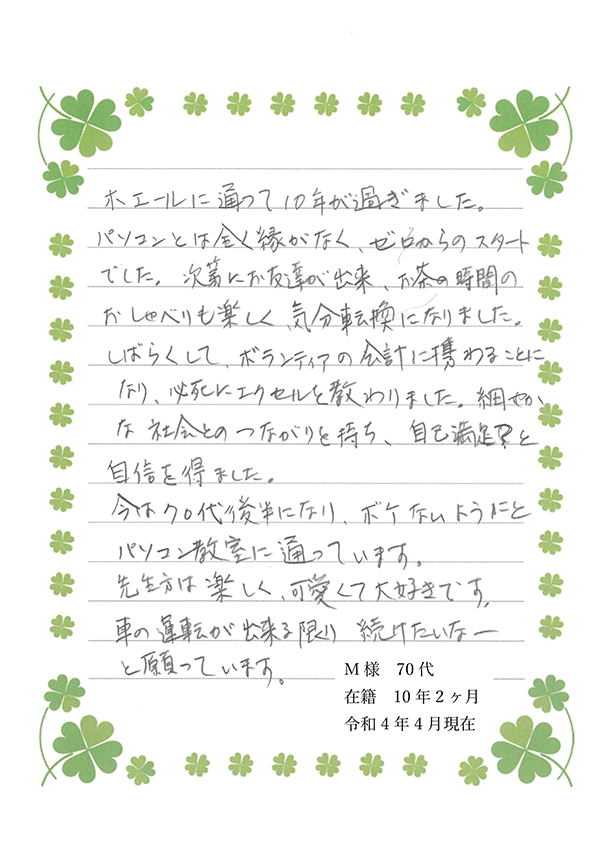 ホエールに通って10年が過ぎました。
パソコンとは全く縁がなく、ゼロからのスタート
でした。次第にお友達が出来、お茶の時間の
おしゃべりも楽しく、気分転換になりました。
しばらくして、ボランティアの会計に携わることに
なり、必死にエクセルを教わりました。細やか
な社会とのつながりを持ち、自己満足?と
自信を得ました。
今は70代後半になり、ボケないようにと
パソコン教室に通っています。
先生方は楽しく、可愛くて大好きです。
車の運転が出来る限り続けたいなー
と願っています。
M様 70代
在籍 10年2ヶ月
令和4年4月現在